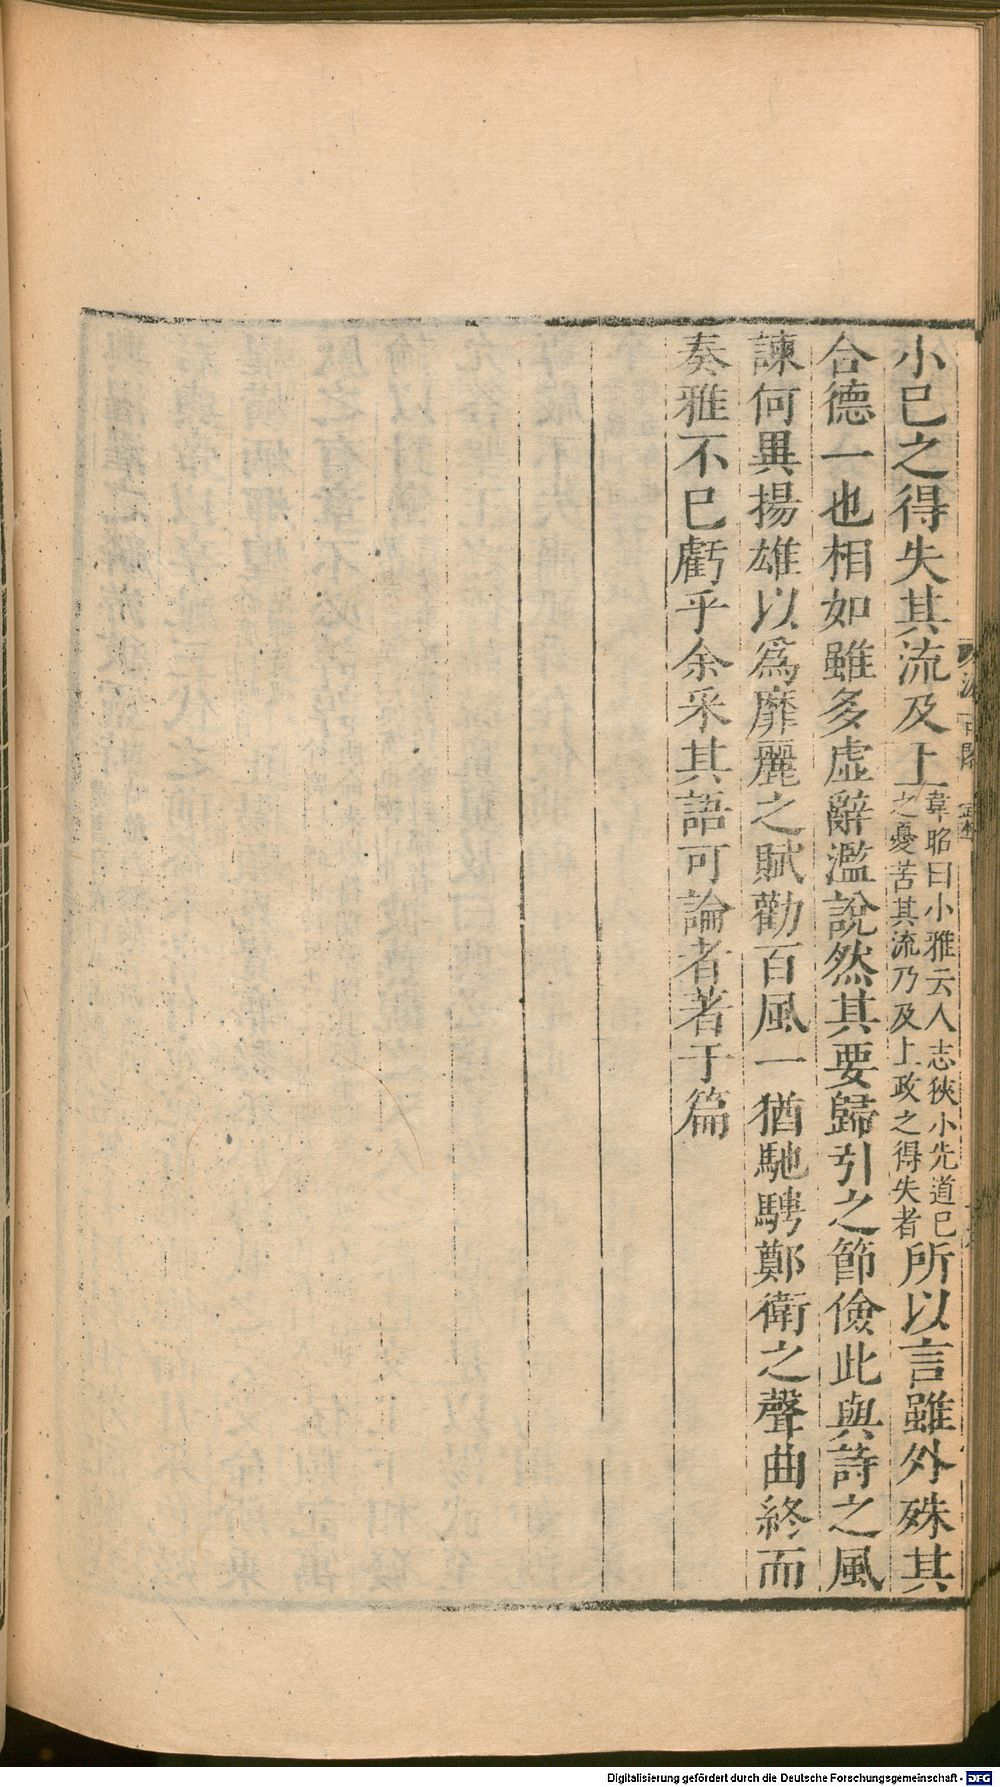 小已之得失其流及上韋昭曰小雅云人志狹小先道已之憂苦其流乃及上政之得失者所以言雖外殊其
合德一也相如雖多虛辭濫說然其要歸引之節儉此與詩之風
諫何異揚雄以爲靡麗之賦勸百風一猶馳騁鄭衛之聲曲終而
奏雅不已虧乎余采其語可論者著于篇
Digitalisierung gefördert durch die Deutsche Forschungsgemeinschaft - DFG